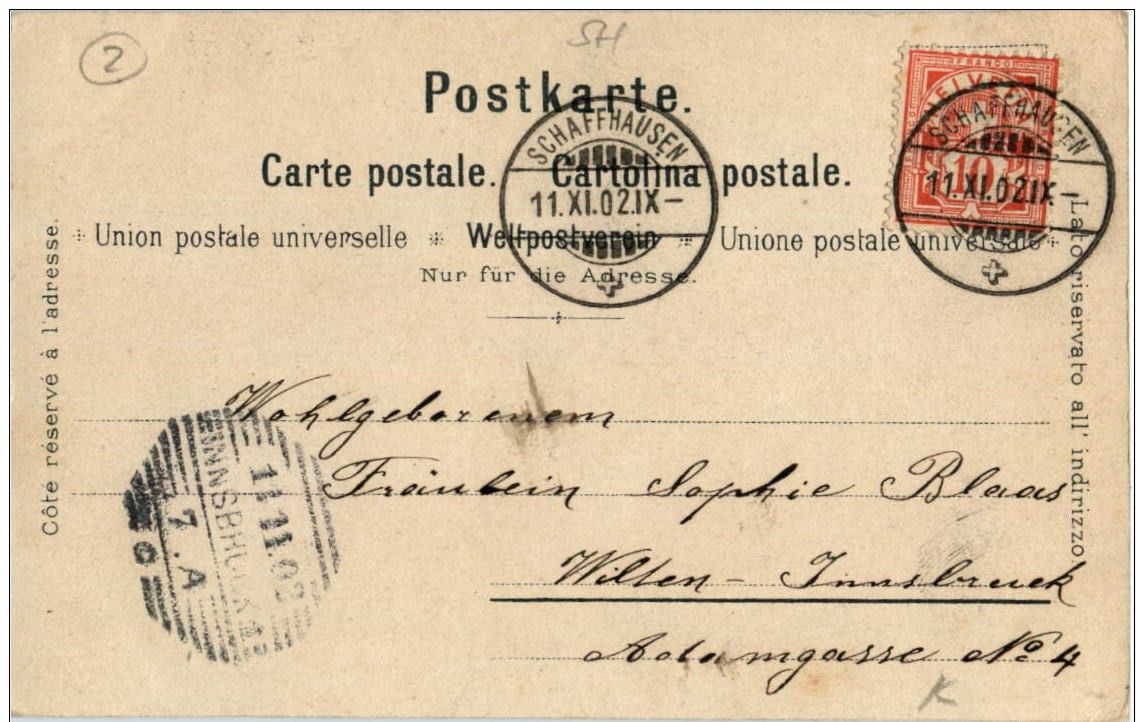 2
SH
Postkarte.
Carte postale. Cartolina postale.
Union postale universelle * Weltpostverein * Unione postale universale
Nur für die Adresse.
Côte réservé à l'adresse.
Lato riservato all' indirizzo
FRANCO
HELVETIA
10
SCHAFFHAUSEN
11.XI.02.IX-
SCHAFFHAUSEN
11.XI.02.IX-
Wohlgeborenem
Fräulein Sophie Blaas
Wilten - Innsbruck
Adamgasse No 4
INNSBRUCK 1
11.11.02
7.A
K